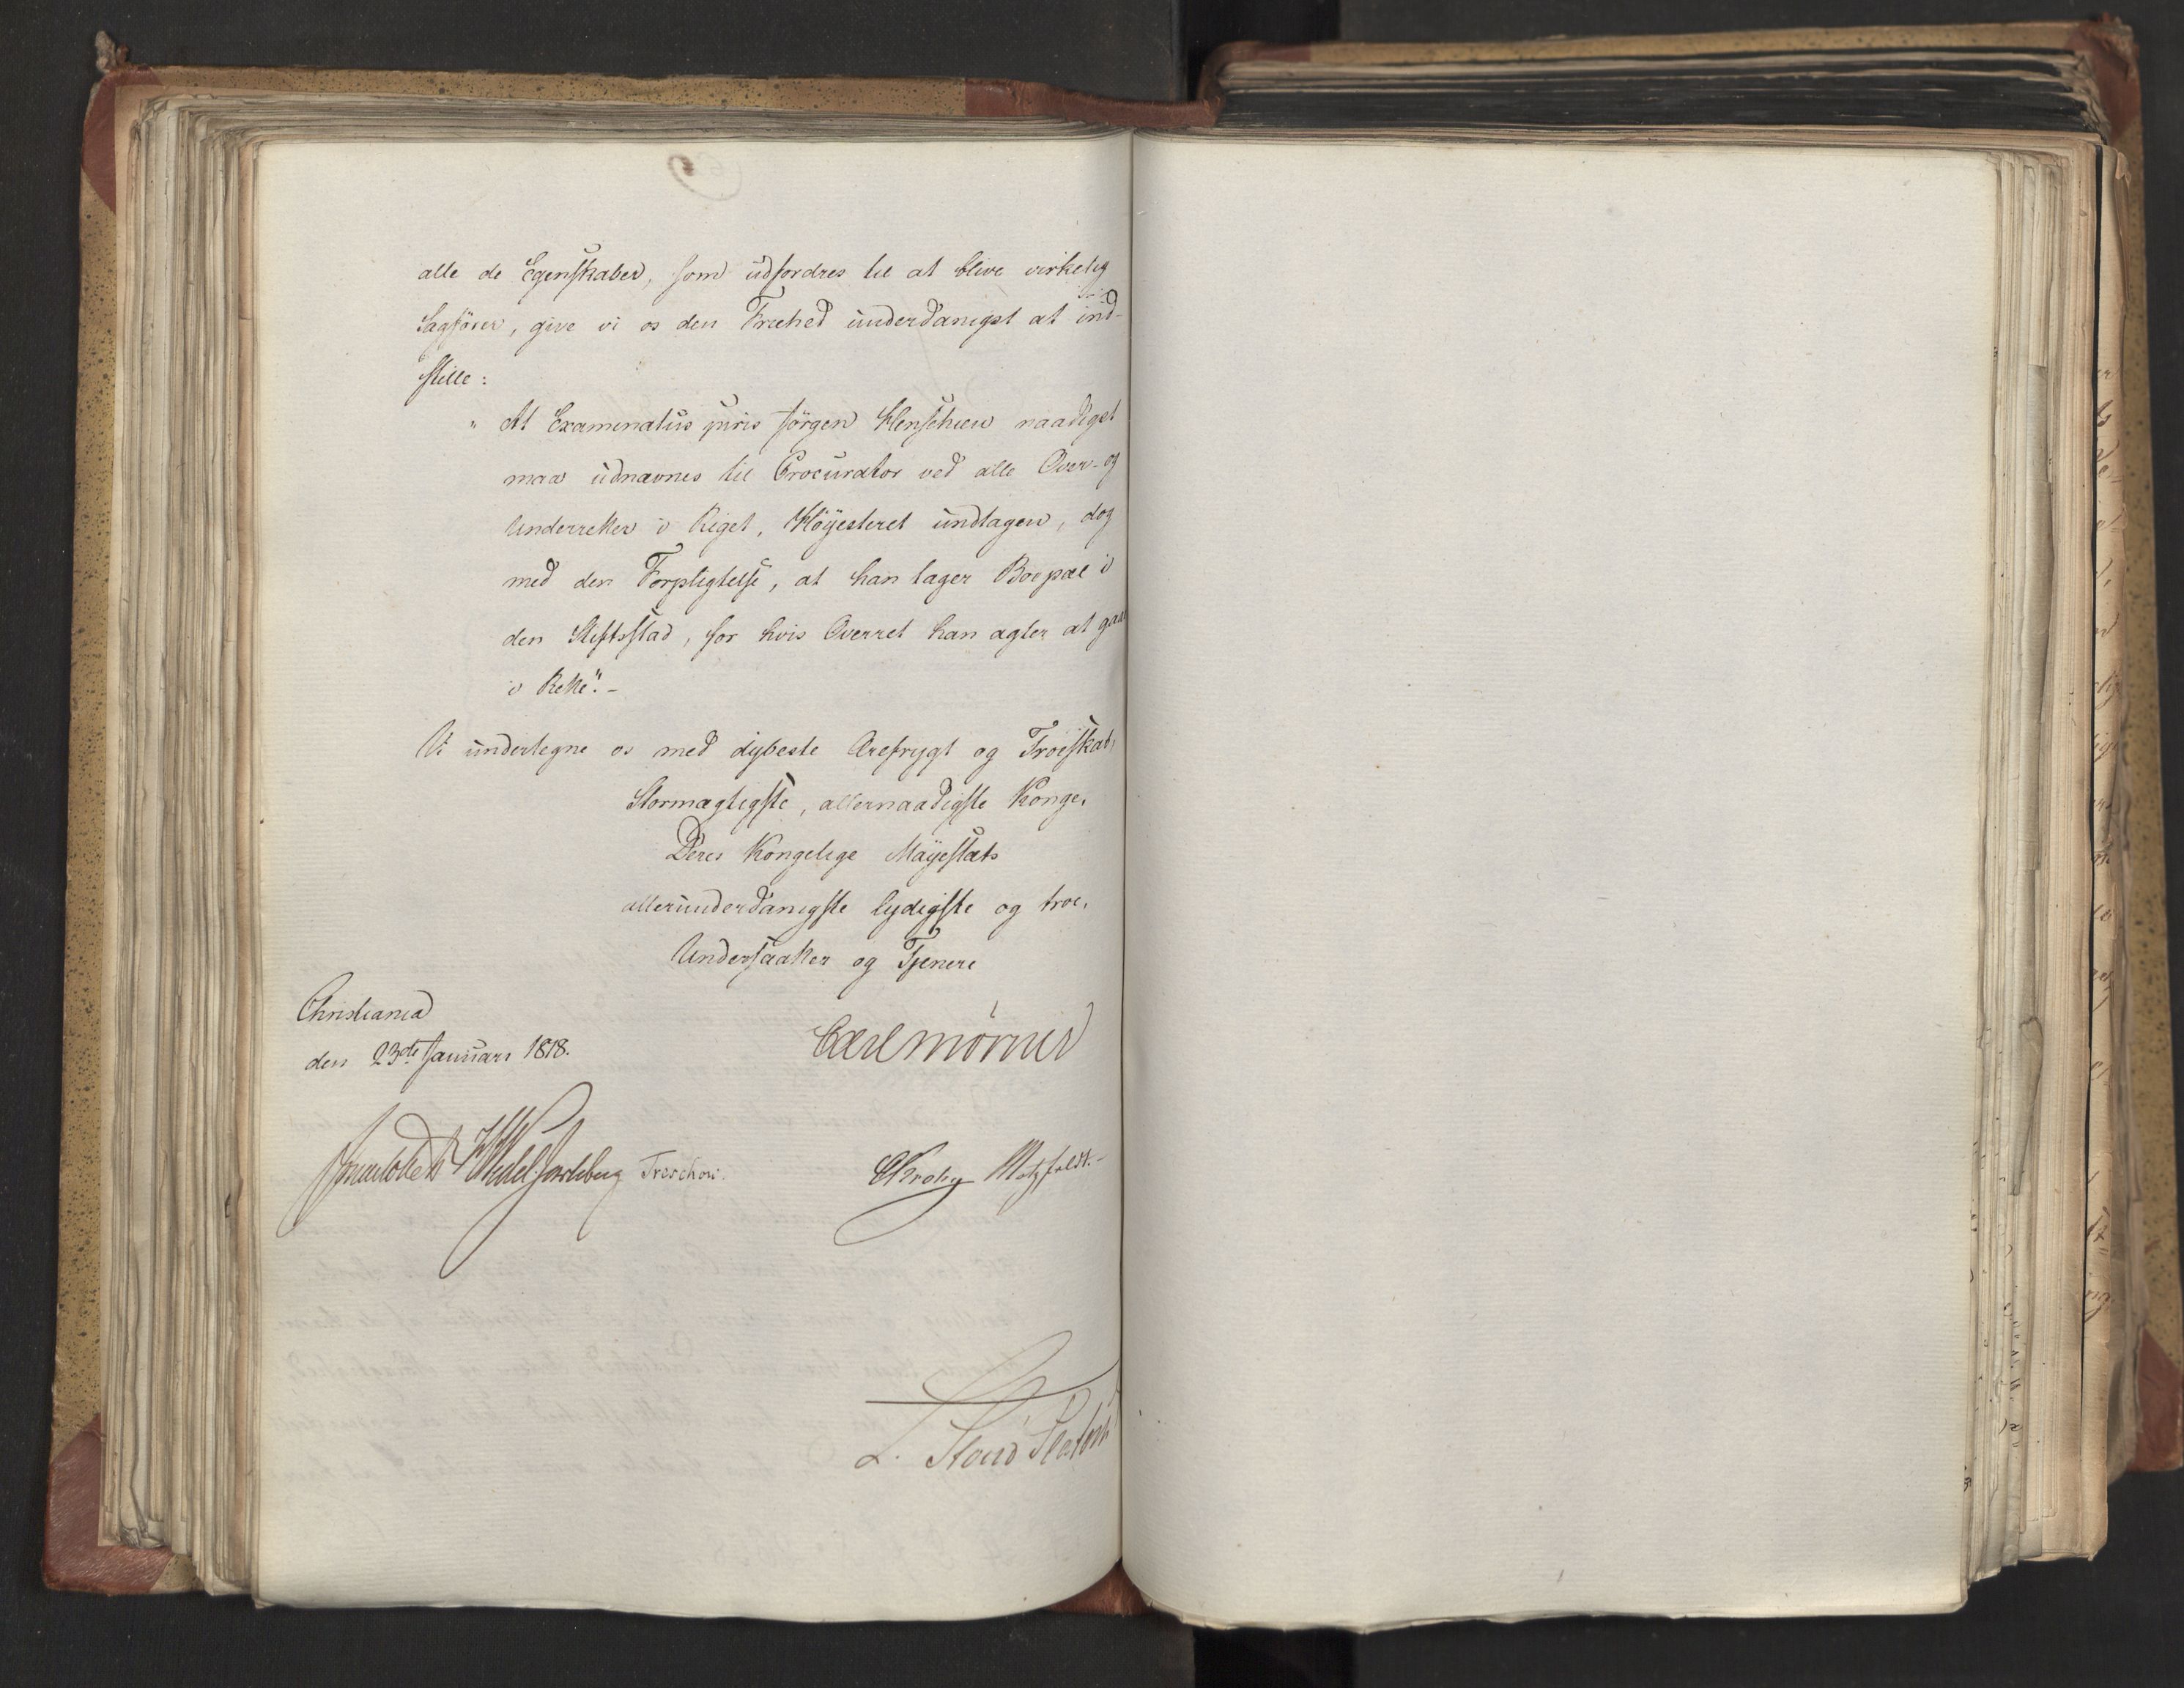 alle de Egenskaber, som udfordres til at blive virkelig
Sagfører, give vi os den Friehed underdanigst at ind-
stille:
" At Examinatus juris Jörgen Henschien naadigst
maa udnævnes til Procurator ved alle Over- og
Underretter i Riget, Höyesteret undtagen, dog
med den Forpligtelse, at han tager Boepæl i
den Stiftsstad, for hvis Overret han agter at gaae
i Rette". -
Vi undertegne os med dybeste Ærefrygt og Troeskab,
Stormægtigste, allernaadigste Konge,
Deres Kongelige Mayestæts
allerunderdanigste lydigste og troe,
Undersaatter og Tjenere
Christiania
den 23de Januari 1818.
Carl Mörner
Wedel Jarlsberg Treschow. CKrohg Motzfeldt.-
L. Stoud Platou